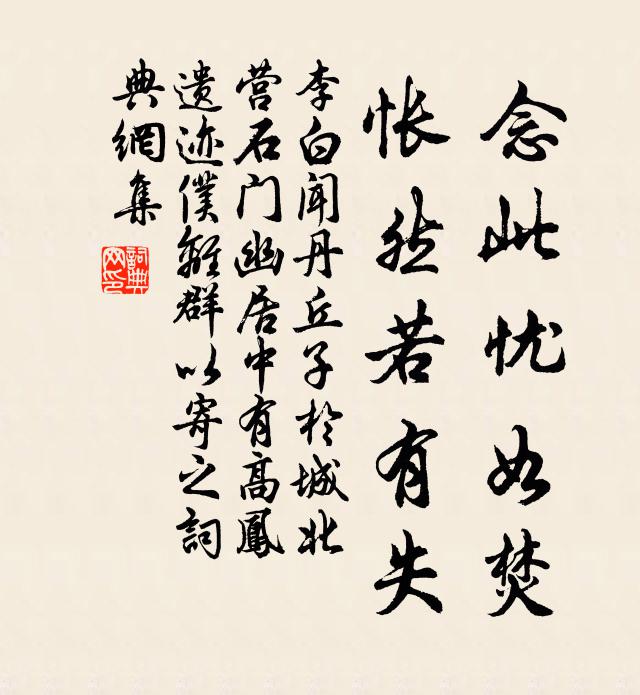 念此忧如焚
怅然若有失
李白闻丹丘子於城北
营石门幽居中有高鳳
遗迹僕離群以寄之詞
典網集
詞典网印